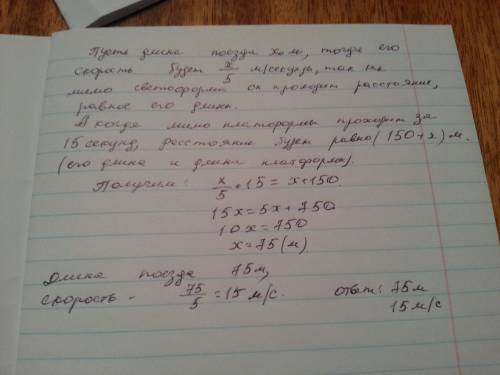 Пусть длина поезда х м, тогда его
скорость будет x/5 м/секунда, так как
мимо светоформа он проходит расстояние,
равное его длине.
А когда мимо платформы проходит за
15 секунд, расстояние будет равно (150+x) м.
(его длина и длина платформы).
Получим: x/5 · 15 = x+150.
15x = 5x + 750
10x = 750
x = 75 (м).
Длина поезда 75 м,
скорость - 75/5 = 15 м/с. ответ: 75 м
15 м/с